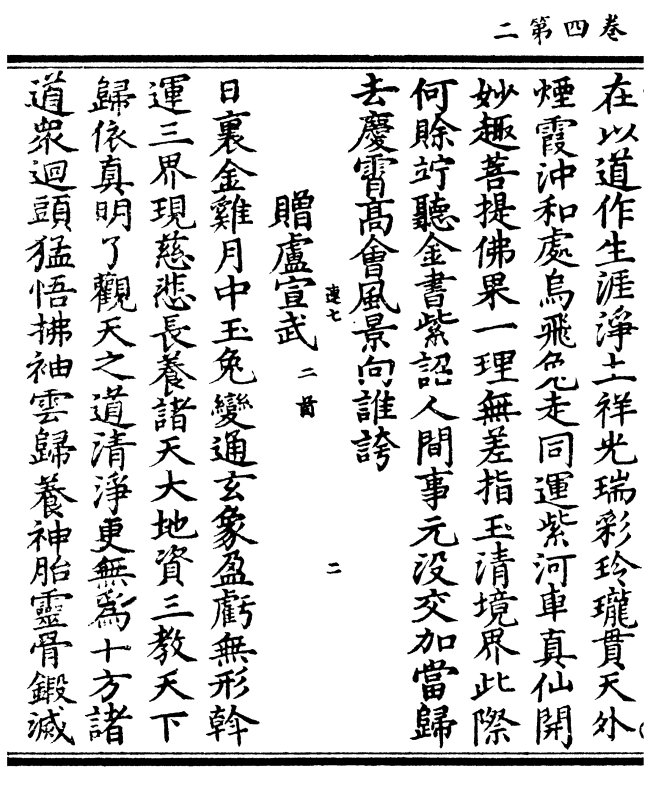 卷四第二
在以道作生涯淨土祥光瑞彩玲瓏貫天外
煙霞沖和處烏飛兔走同運紫河車真仙開
妙趣菩提佛果一理無差指玉清境界此際
何賒竚聽金書紫詔人間事元没交加當歸
去慶霄高會風景向誰誇
連七
贈盧宣武二首
二
日裏金雞月中玉兔變通玄象盈虧無形斡
運三界現慈悲長養諸天大地資三教天下
歸依真明了觀天之道清淨更無為十方諸
道眾迴頭猛悟拂袖雲歸養神胎靈骨鍛滅